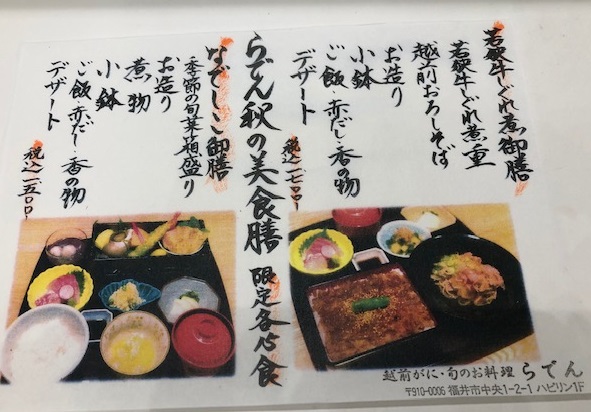 若狭牛しぐれ煮御膳
若狭牛しぐれ煮重
越前おろしそば
お造り
小鉢
ご飯 赤だし 香の物
デザート
税込一七〇〇
らでん秋の美食膳 限定各 食
なでしこ御膳
季節の旬菜箱盛り
お造り
煮物
小鉢
ご飯 赤だし 香の物
デザート
税込一五〇〇
越前がに・旬のお料理 らでん
〒910-0006 福井市中央1-2-1 ハピリン1F